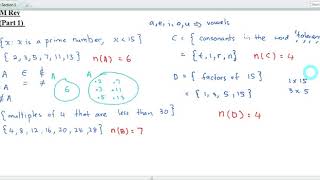 Section 5
M Rev
(Part 1)
{x: x is a prime number, x < 15}
{2, 3, 5, 7, 11, 13}
n(A) = 6
A ∈ ∉
A
6
.2 .7
.3 .11
.5 .13
{multiples of 4 that are less than 30}
{4, 8, 12, 16, 20, 24, 28}
n(B) = 7
a, e, i, o, u → vowels
C = {consonants in the word
= {t, l, r, n}
n(C) = 4
D = {factors of 15}
= {1, 3, 5, 15}
1 x 15
3 x 5
n(D) = 4